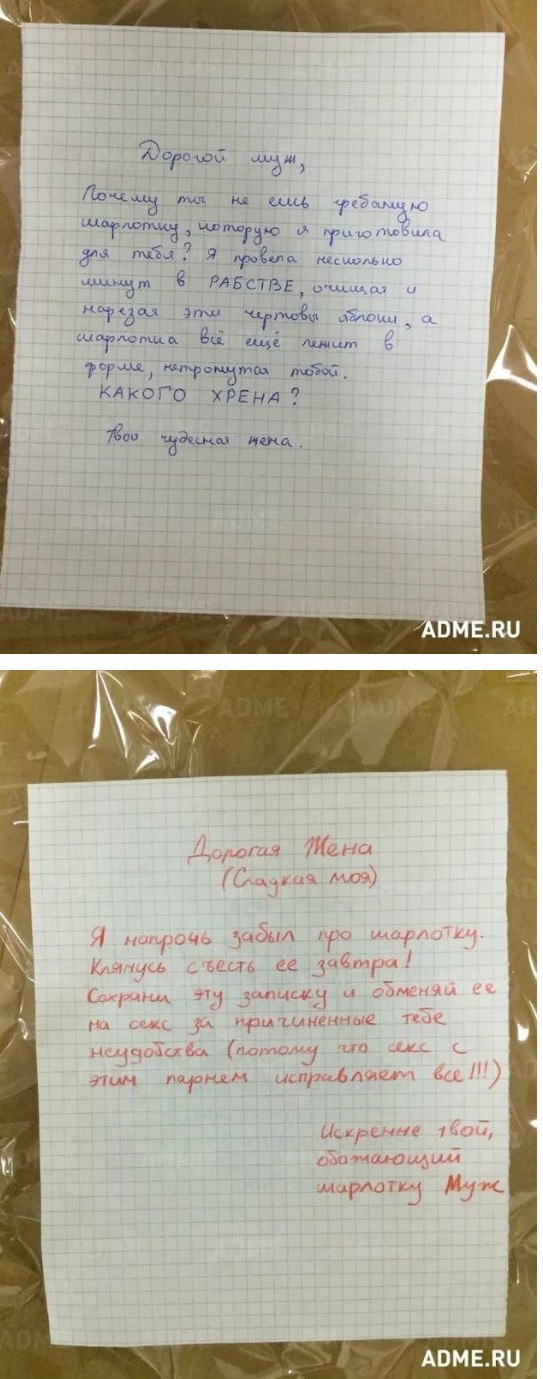 Дорогой муж,
Почему ты не ешь гребаную
шарлотку, которую я приготовила
для тебя? Я провела несколько
минут в РАБСТВЕ, очищая и
нарезая эти чертовы яблоки, а
шарлотка всё ещё лежит в
форме, нетронутая тобой.
КАКОГО ХРЕНА?
Твоя чудесная жена.
ADME.RU
Дорогая Жена
(Сладкая моя)
Я напрочь забыл про шарлотку.
Клянусь съесть ее завтра!
Сохрани эту записку и обменяй ее
на секс за причиненные тебе
неудобства (потому что секс с
этим парнем исправляет все!!!)
Искренне твой,
обожающий
шарлотку Муж
ADME.RU